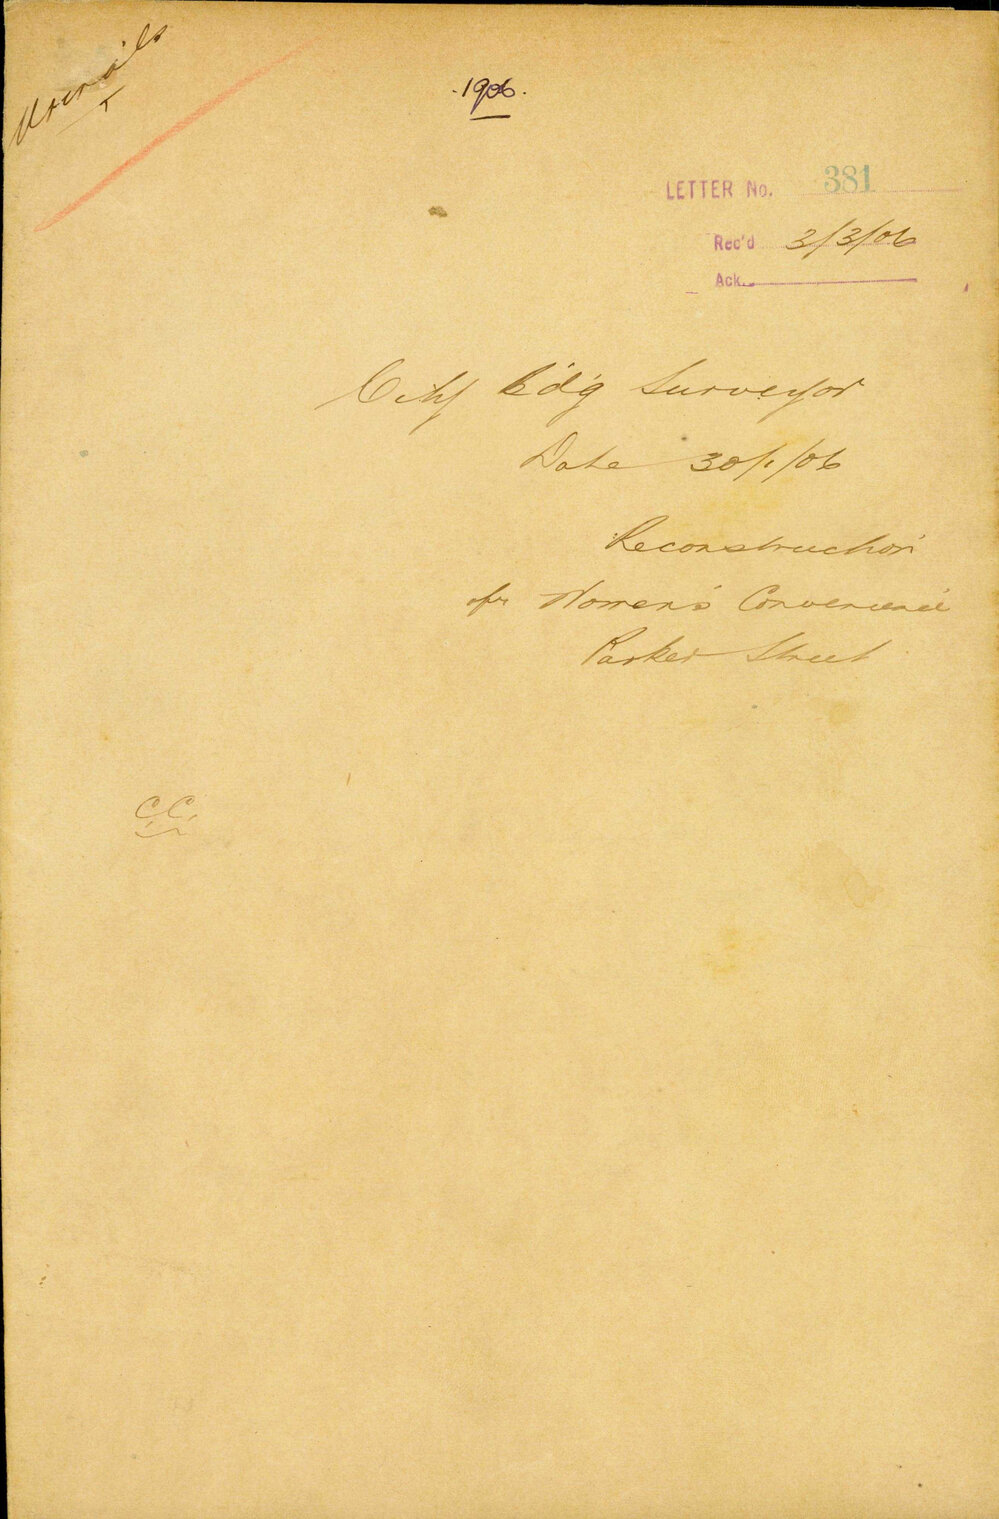 Urinals
1906.
LETTER No. 381
Rec'd 3/3/06
Ack.
City B'd'g Surveyor
Date 30/1/06
Reconstruction
of Women's Convenience
Parker Street
C.C.